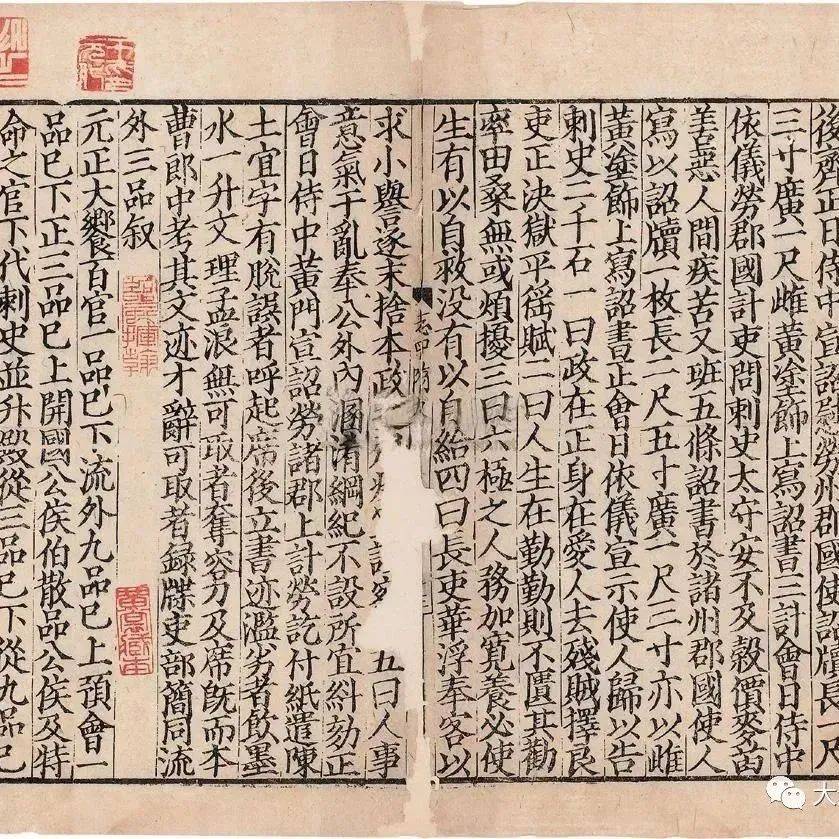 後齊正日侍中宣詔慰勞州郡國使詔牘長一尺
三寸廣一尺雌黃塗飾上寫詔書三計會日侍中
依儀勞郡國計吏問刺史太守安不及穀價麥苗
善惡人間疾苦又班五條詔書於諸州郡國使人
寫以詔牘一枚長二尺五寸廣一尺三寸亦以雌
黃塗飾上寫詔書正會日依儀宣示使人歸以告
刺史二千石一曰政在正身在愛人去殘賊擇良
吏正決獄平徭賦二曰人生在勤勤則不匱其勸
率田桑無或煩擾三曰六極之人務加寬養必使
生有以自救沒有以自給四曰長吏華浮奉客以
志四 隋
求小譽逐末捨本政五曰人事
意氣干亂奉公外內溷淆綱紀不設所宜糾劾正
會日侍中黃門宣詔勞諸郡上計勞訖付紙遣陳
土宜字有脫誤者呼起席後立書迹濫劣者飲墨
水一升文理孟浪無可取者奪容刀及席既而本
曹郎中考其文迹才辭可取者錄牒吏部簡同流
外三品叙
元正大饗百官一品已下流外九品已上預會一
品已下正三品已上開國公侯伯散品公侯及特
命之官下代刺史並升殿從三品已下從九品已
大